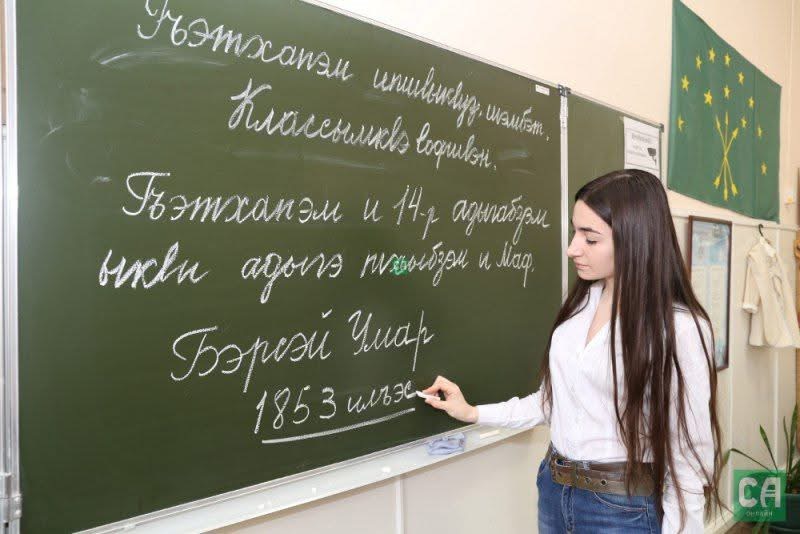 Гъэтхапэм ипшIыкIуз, шэмбэт.
КлассымкIэ IофшIэн.
Гъэтхапэм и 14-р адыгабзэм
ыкIи адыгэ тхыбзэм и Маф.
Бэрсэй Умар
1853 илъэс
СА
ОНЛАЙН